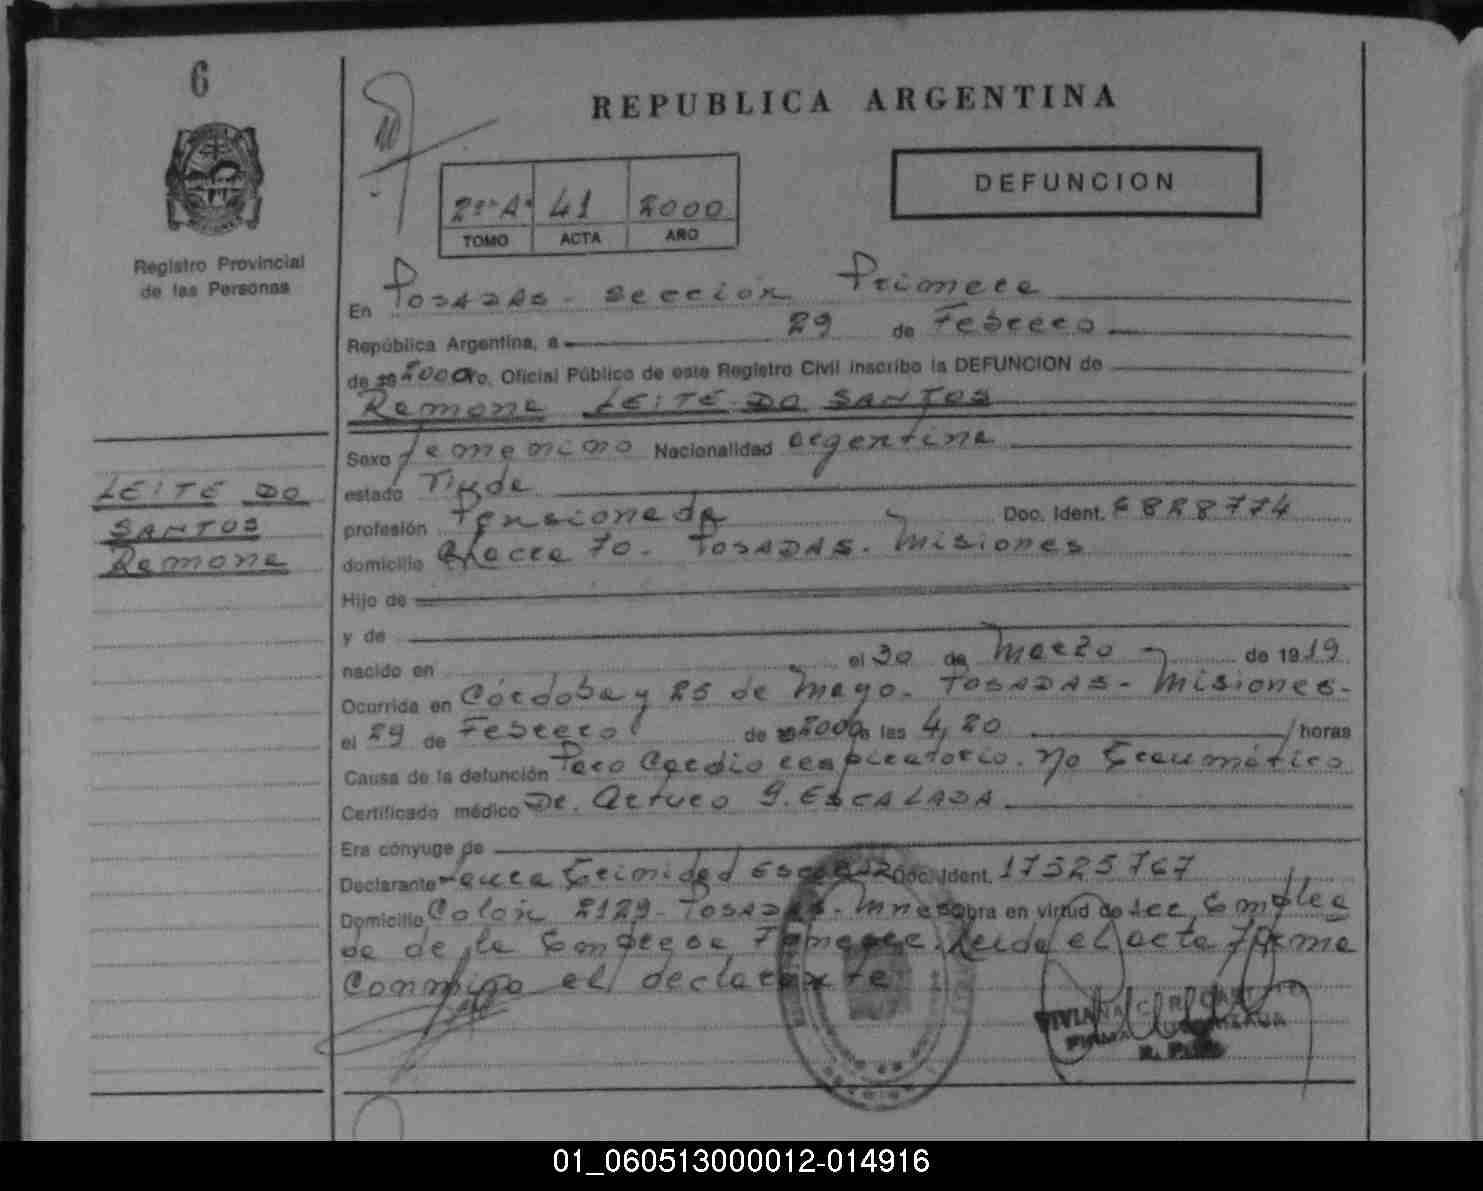 6
REPUBLICA ARGENTINA
DEFUNCION
41 2000
TOMO ACTA AÑO
Registro Provincial
de las Personas
En Posadas - Sección Primera
República Argentina, a 29 de Febrero
de 19 2000 Yo, Oficial Público de este Registro Civil inscribo la DEFUNCION de
Ramona LEITE DO SANTOS
Sexo femenino Nacionalidad argentina
LEITE DO
SANTOS
Ramona
estado Viuda
profesión Pensionada Doc. Ident. F 828774
domicilio Chacra 70 - POSADAS - Misiones
Hijo de
y de
nacido en el 30 de Marzo de 1919
Ocurrida en Córdoba y 25 de Mayo - POSADAS - Misiones -
el 29 de Febrero de 19 2000 a las 4,20 horas
Causa de la defunción Paro Cardio respiratorio. no traumático
Certificado médico Dr. Arturo G. ESCALADA
Era cónyuge de
Declarante Laura Trinidad Doc. Ident. 17325767
Domicilio Colón 2129 - POSADAS - Mnes obra en virtud de ser Emplea
da de la Empresa. Leída el acta Firma
Conmigo el declarante
VIVIANA
FIRMA
01_060513000012-014916